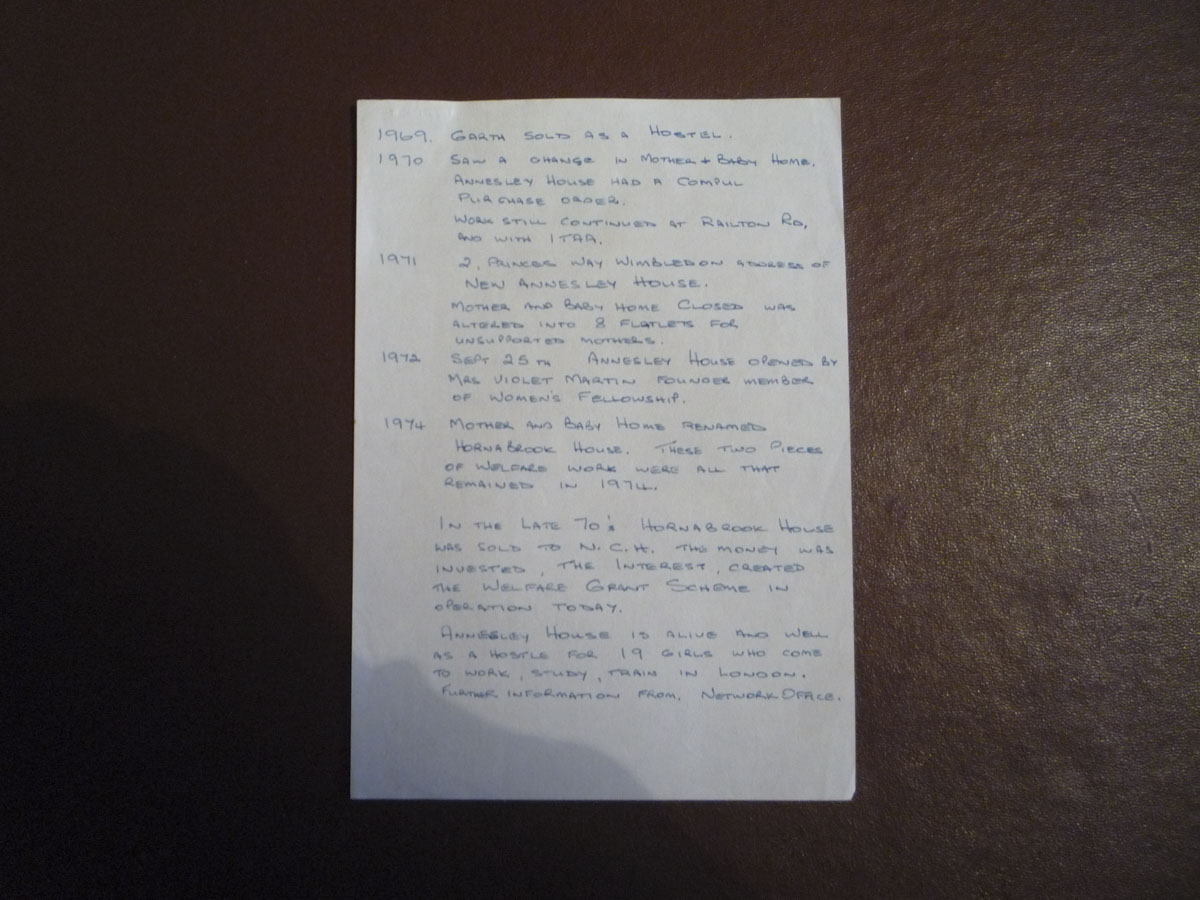 1969. GARTH SOLD AS A HOSTEL.
1970 SAW A CHANGE IN MOTHER + BABY HOME.
ANNESLEY HOUSE HAD A COMPUL
PURCHASE ORDER.
WORK STILL CONTINUED AT RAILTON RD,
AND WITH
1971 2, PRINCES WAY WIMBLEDON ADDRESS OF
NEW ANNESLEY HOUSE.
MOTHER AND BABY HOME CLOSED WAS
ALTERED INTO 8 FLATLETS FOR
UNSUPPORTED MOTHERS.
1972 SEPT 25TH ANNESLEY HOUSE OPENED BY
MRS VIOLET MARTIN FOUNDER MEMBER
OF WOMEN'S FELLOWSHIP.
1974 MOTHER AND BABY HOME RENAMED
HORNABROOK HOUSE. THESE TWO PIECES
OF WELFARE WORK WERE ALL THAT
REMAINED IN 1974.
IN THE LATE 70's HORNABROOK HOUSE
WAS SOLD TO N.C.H. THE MONEY WAS
INVESTED, THE INTEREST, CREATED
THE WELFARE GRANT SCHEME IN
OPERATION TODAY.
ANNESLEY HOUSE IS ALIVE AND WELL
AS A HOSTLE FOR 19 GIRLS WHO COME
TO WORK, STUDY, TRAIN IN LONDON.
FURTHER INFORMATION FROM. NETWORK OFFICE.